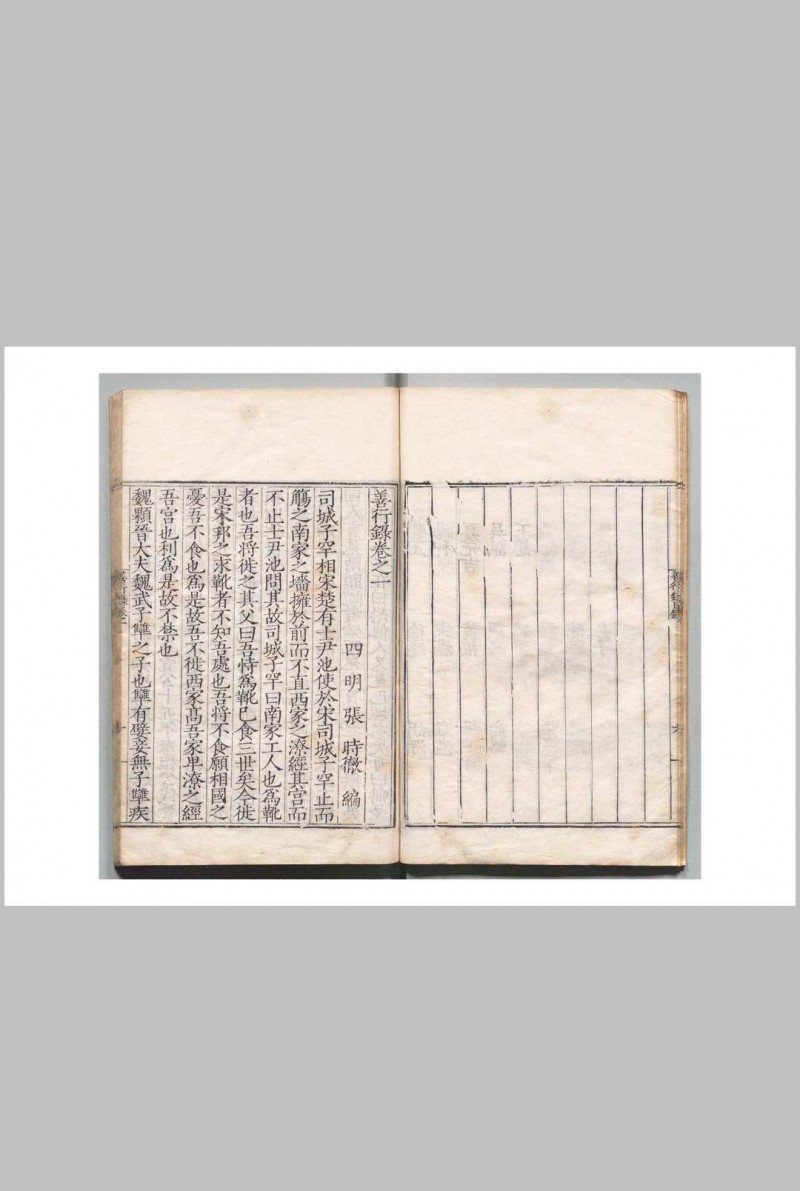 善行錄卷之一
四明張時徹編
司城子罕相宋楚有士尹池使於宋司城子罕止而
觴之南家之墻擁於前而不直西家之潦經其宫而
不止士尹池問其故司城子罕曰南家工人也為靴
者也吾將徙之其父曰吾恃為靴已食三世矣今徙
是宋邦之求靴者不知吾處也吾將不食願相國之
憂吾不食也為是故吾不徙西家髙吾家卑潦之經
吾宫也利為是故不禁也
魏顆晉大夫魏武子犨之子也犨有嬖妾無子犨疾